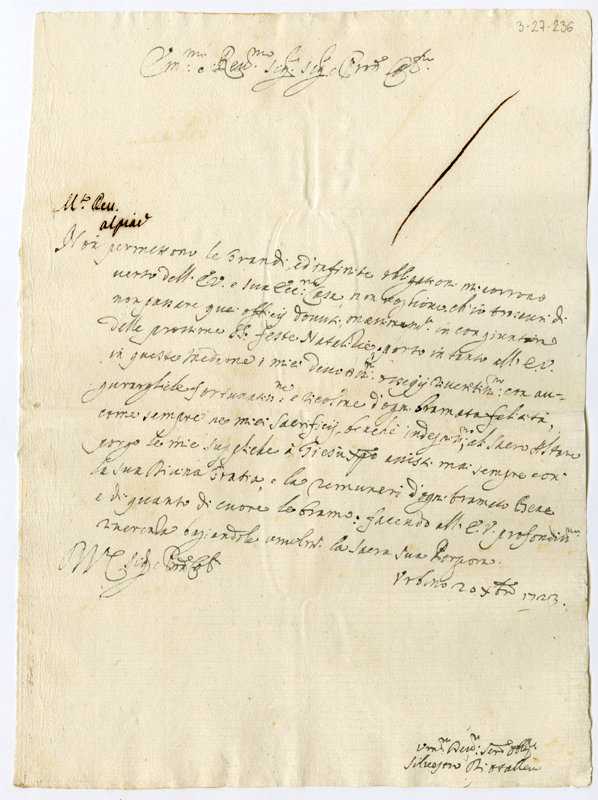 3-27-236
Em.mo e Reu.mo Sig.r Sig.r e Pron Col.mo
M.to Reu.
Non permettono le grandi, ed infinite obligationi mi corrono
uerso dell' E.V. e sua Ecc.ma Casa, non uogliono, ch' io trascuri di
non passare quei officij douuti, massimam.te in congiuntura
delle prossime SS. feste Natalitie, porto in tanto all' E.V.
in queste medeme i miei deuot.mi ossequij riuerentis.mi con au-
gurargliele fortunatis.me e ricolme d'ogni bramata felicità,
come sempre ne miei Sacrificij, benche indegnis.mo al Sacro Altare
porgo le mie suppliche à Giesù assisti mai sempre con
la sua Diuina Gratia, e la remuneri d'ogni bramato bene
e di quanto di cuore le bramo: facendo all' E.V. profondis.ma
riuerenza bagiandole umilm.te la Sacra sua Porpora.
Urbino 20 Xbre 1723.
Um.mo Deu.mo Ser.e obl.mo
Siluestro